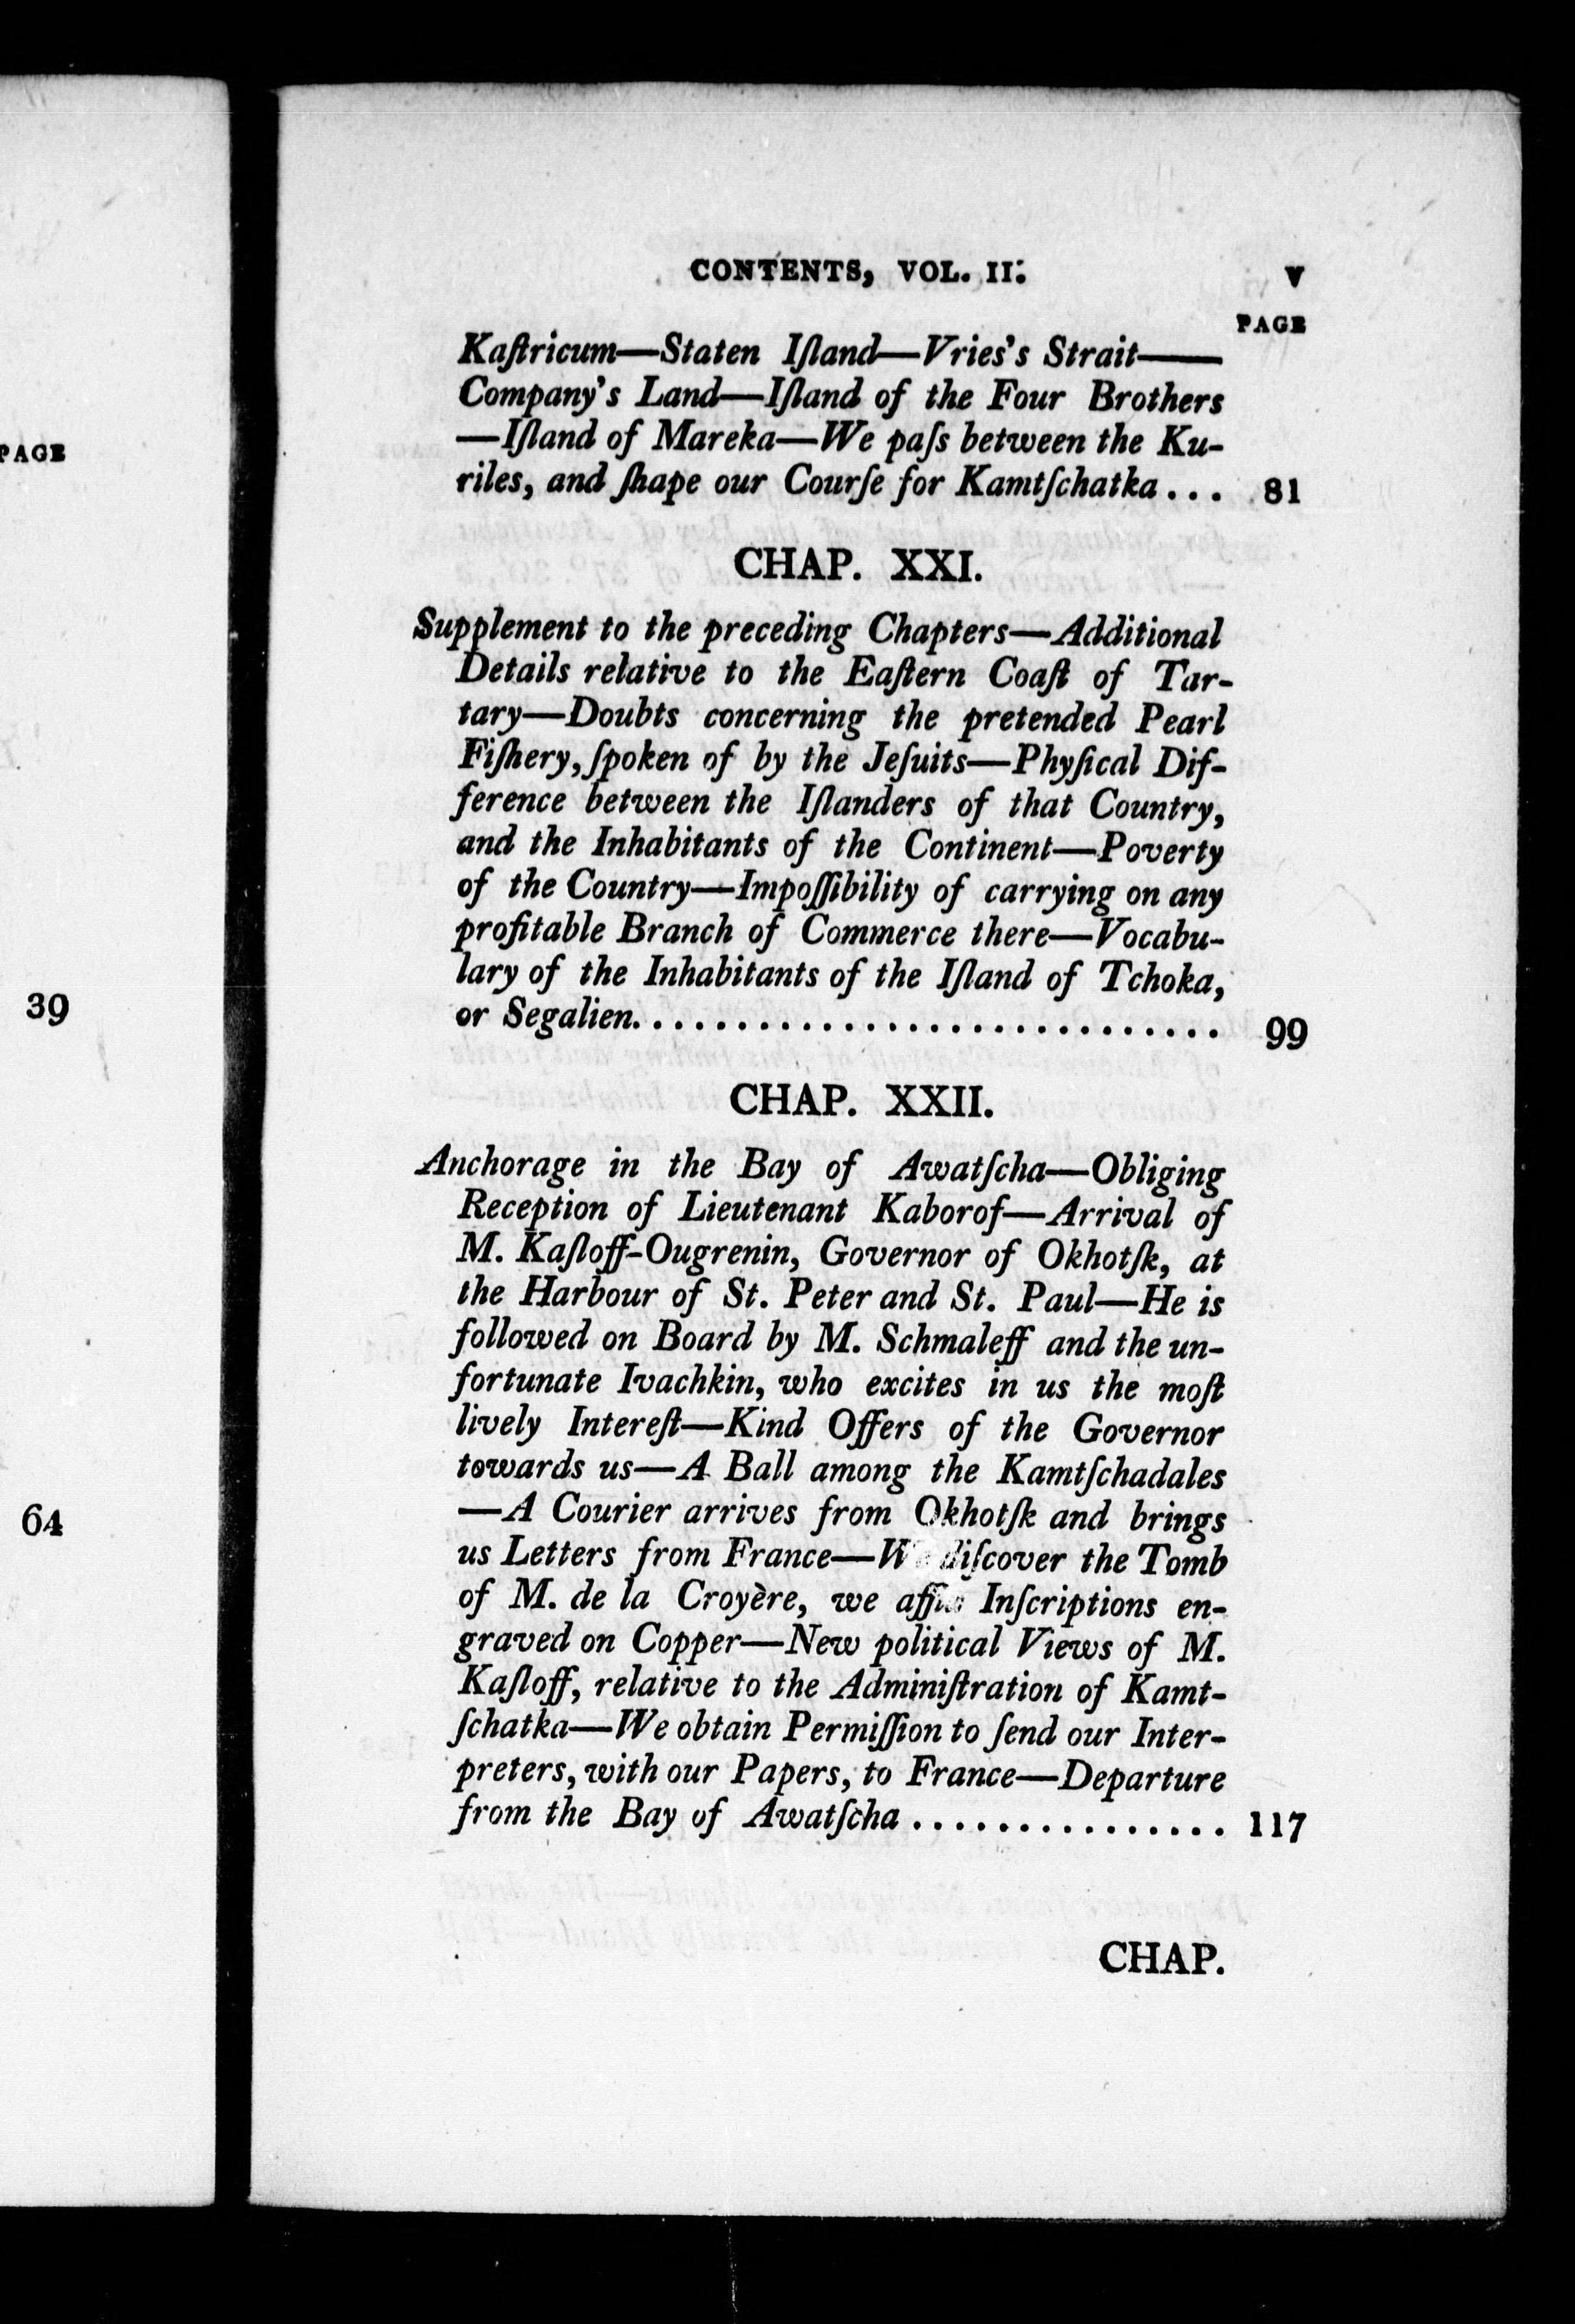 PAGE
39
64
CONTENTS, VOL. II. V
PAGE
Kaſtricum—Staten Iſland—Vries's Strait——
Company's Land—Iſland of the Four Brothers
—Iſland of Mareka—We paſs between the Ku-
riles, and ſhape our Courſe for Kamtſchatka... 81
CHAP. XXI.
Supplement to the preceding Chapters—Additional
Details relative to the Eaſtern Coaſt of Tar-
tary—Doubts concerning the pretended Pearl
Fiſhery, ſpoken of by the Jeſuits—Phyſical Dif-
ference between the Iſlanders of that Country,
and the Inhabitants of the Continent—Poverty
of the Country—Impoſſibility of carrying on any
profitable Branch of Commerce there—Vocabu-
lary of the Inhabitants of the Iſland of Tchoka,
or Segalien............................ 99
CHAP. XXII.
Anchorage in the Bay of Awatſcha—Obliging
Reception of Lieutenant Kaborof—Arrival of
M. Kaſloff-Ougrenin, Governor of Okhotſk, at
the Harbour of St. Peter and St. Paul—He is
followed on Board by M. Schmaleff and the un-
fortunate Ivachkin, who excites in us the moſt
lively Intereſt—Kind Offers of the Governor
towards us—A Ball among the Kamtſchadales
—A Courier arrives from Okhotſk and brings
us Letters from France—We diſcover the Tomb
of M. de la Croyère, we Inſcriptions en-
graved on Copper—New political Views of M.
Kaſloff, relative to the Adminiſtration of Kamt-
ſchatka—We obtain Permiſſion to ſend our Inter-
preters, with our Papers, to France—Departure
from the Bay of Awatſcha ............... 117
CHAP.